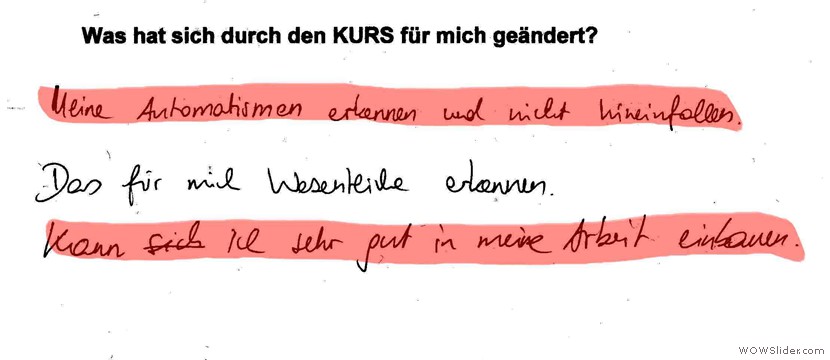 Was hat sich durch den KURS für mich geändert?
Meine Automatismen erkennen und nicht hineinfallen.
Das für mich Wesentliche erkennen.
Kann sich ich sehr gut in meine Arbeit einbauen.
WOWSlider.com